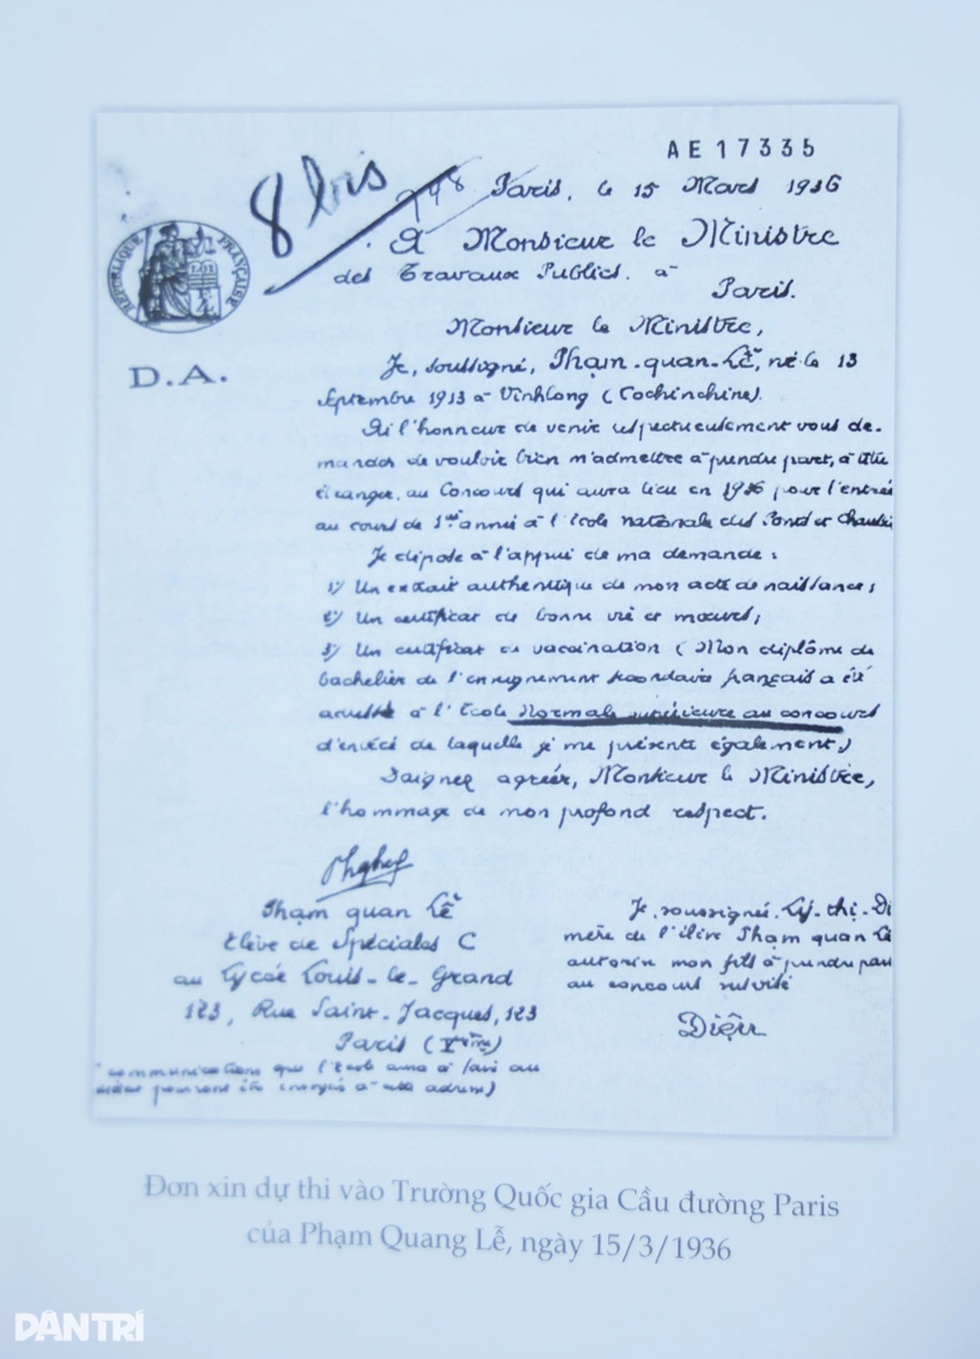 AE17335
8 bis
948 Paris, le 15 Mars 1936
RÉPUBLIQUE FRANÇAISE
LOI
A Monsieur le Ministre
des Travaux Publics. à
Paris.
D.A.
Monsieur le Ministre,
Je, soussigné, Phạm-quan-Lễ, né le 13
Septembre 1913 à Vinhlong (Cochinchine).
Ai l'honneur de venir respectueusement vous de-
mander de vouloir bien m'admettre à prendre part, à titre
étranger, au Concours qui aura lieu en 1936 pour l'entrée
au cours de 1ère année à l'école nationale des Ponts et
Je dépose à l'appui de ma demande :
1°/ Un extrait authentique de mon acte de naissance;
2°/ Un certificat de bonne vie et mœurs;
3°/ Un certificat de vaccination (Mon diplôme de
bachelier de l'enseignement secondaire français a été
à l'École Normale supérieure au concours
d'entrée de laquelle je me présente également)
Daignez agréer, Monsieur le Ministre,
l'hommage de mon profond respect.
Phạm quan Lễ
Elève de Spéciales C
au Lycée Louis-le-Grand
123, Rue Saint-Jacques, 123
Paris (Vème)
communications que l'École aura à faire au
pourront être envoyés à adresse)
Je, soussignée, Lý-thị-Di
mère de l'élève Phạm quan Lễ
autorise mon fils à prendre part
au concours susvisé
Diệu
Đơn xin dự thi vào Trường Quốc gia Cầu đường Paris
của Phạm Quang Lễ, ngày 15/3/1936
DÂN TRÍ